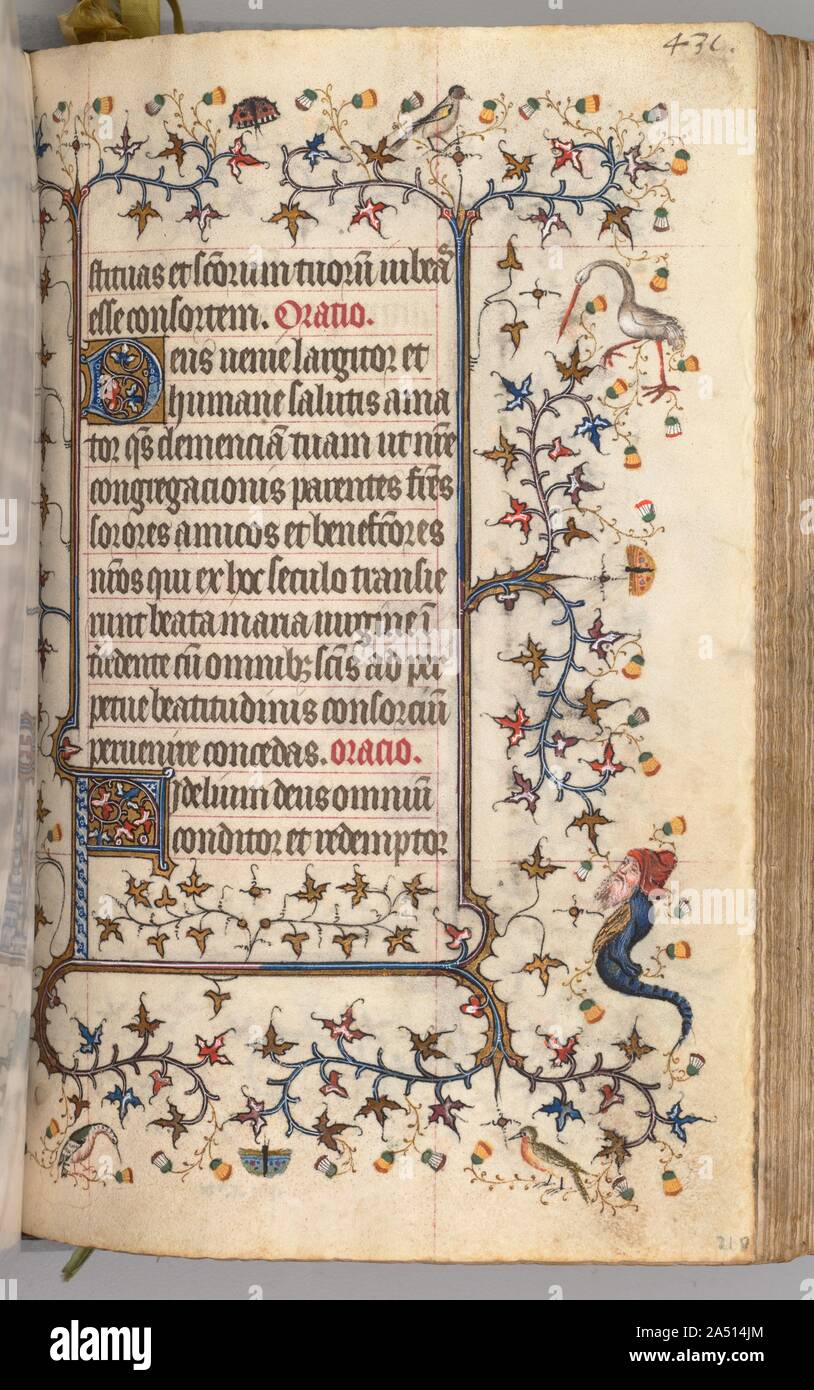 431.
stituas et scōrum tuoru᷑ iubeas
esse consortem. Oratio.
Deus uenie largitor et
humane salutis ama
tor q̄s clemenciā tuam ut nr̄e
congregacionis parentes fr̄es
sorores amicos et benefc̄ores
nr̄os qui ex hoc seculo transie
runt beata maria uirgine ī
t̄cedente cū omnibꝫ sc̄is
petue beatitudinis consorciū
peruenire concedas. oracio.
Fidelium deus omniū
conditor et redemptor
218
alamy
alamy
Image ID: 2A514JM
www.alamy.com